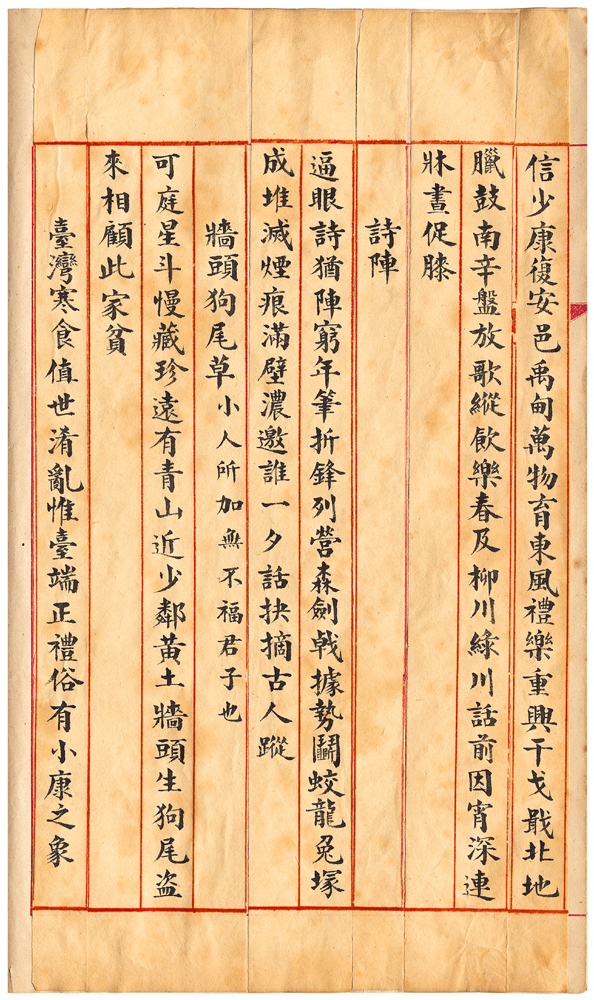 信少康復安邑禹甸萬物育東風禮樂重興干戈戢北地
臘鼓南辛盤放歌縱飲樂春及柳川綠川話前因宵深連
牀晝促膝
詩陣
逼眼詩猶陣窮年筆折鋒列營森劍戟據勢鬭蛟龍兔塚
成堆滅煙痕滿壁濃邀誰一夕話抉摘古人蹤
牆頭狗尾草小人所加無不福君子也
可庭星斗慢藏珍遠有青山近少鄰黃土牆頭生狗尾盜
來相顧此家貧
臺灣寒食值世淆亂惟臺端正禮俗有小康之象